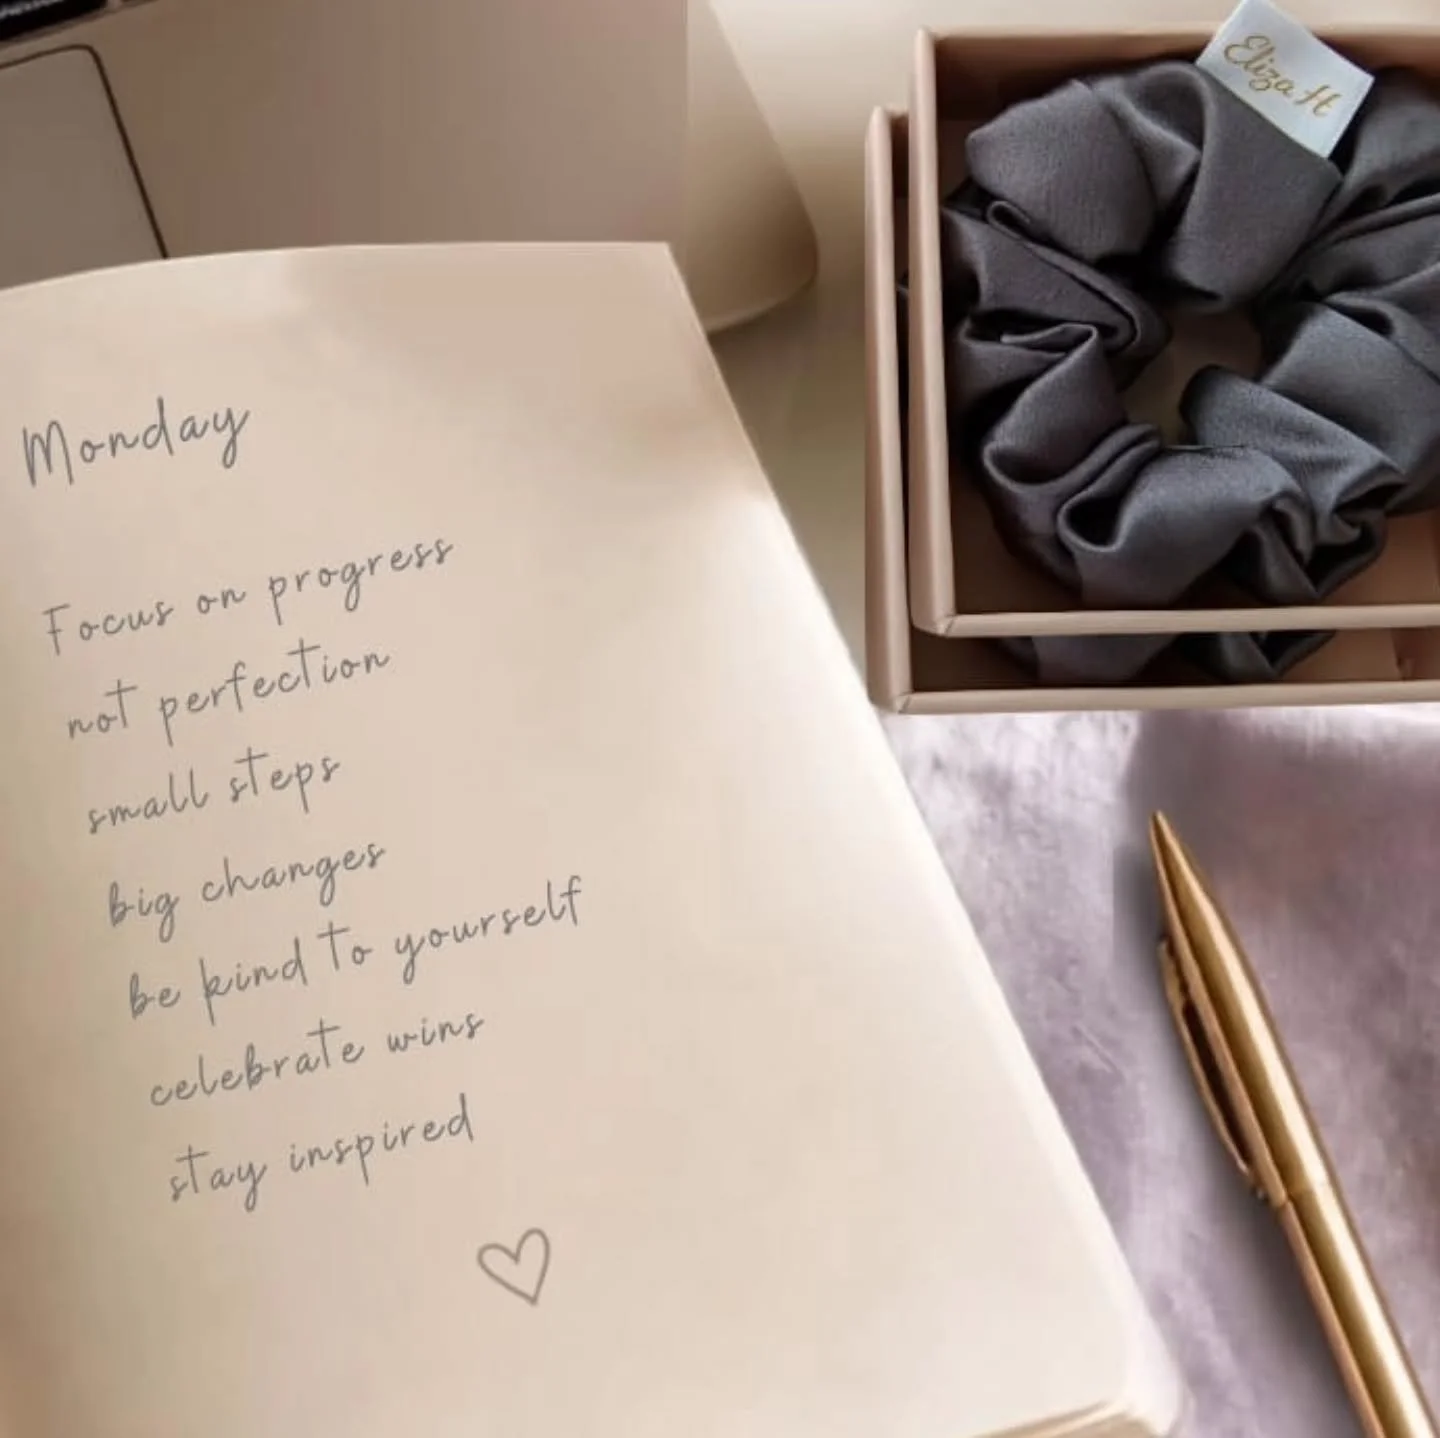 Eliza H
Monday
Focus on progress
not perfection
small steps
big changes
be kind to yourself
celebrate wins
stay inspired